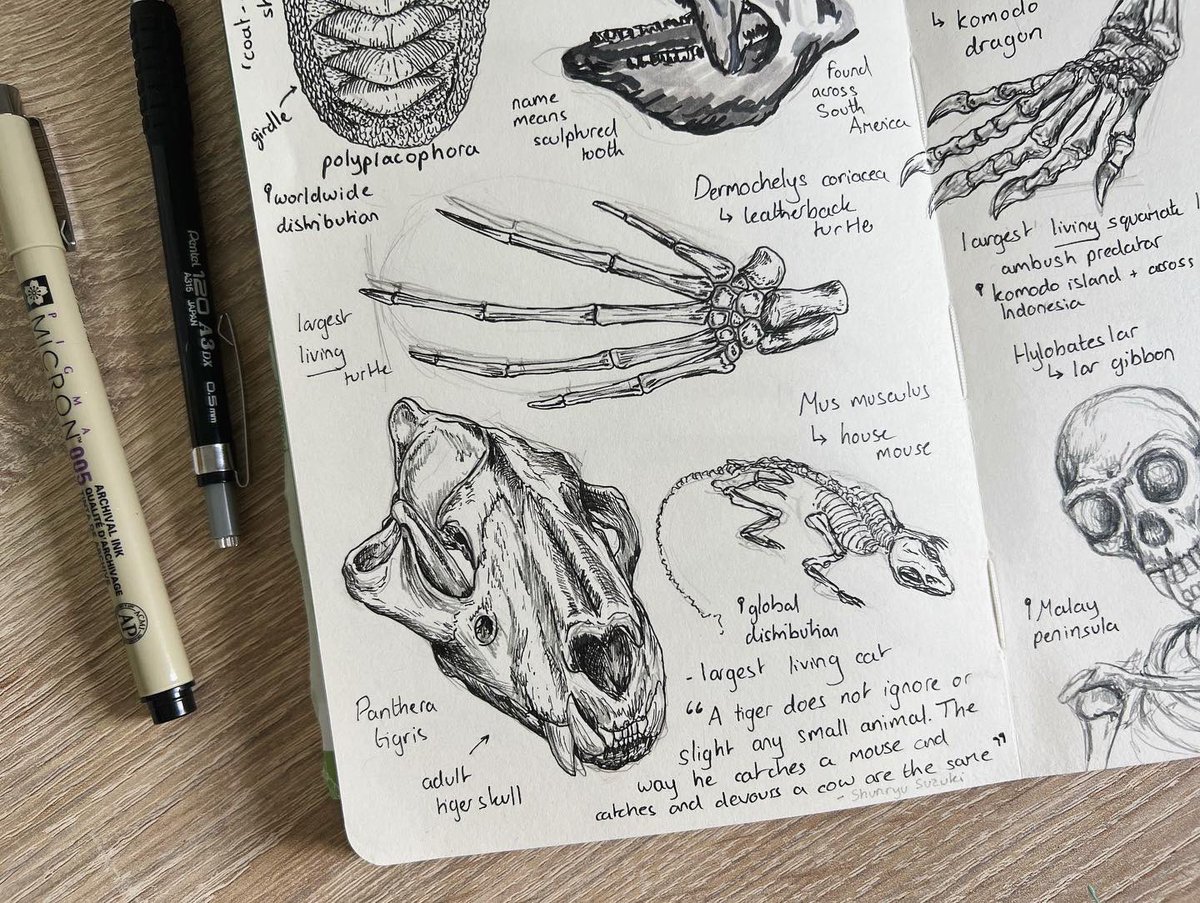 girdle
polyplacophora
worldwide
distribution
name
means
sculptured
tooth
found
across
South
America
Dermochelys coriacea
↳ leatherback
turtle
largest
living
turtle
Mus musculus
↳ house
mouse
global
distribution
Panthera
tigris
adult
tiger skull
- largest living cat
“A tiger does not ignore or
slight any small animal. The
way he catches a mouse and
catches and devours a cow are the same”
- Shunryu Suzuki
↳ komodo
dragon
largest living squamate
ambush predator
komodo island + across
Indonesia
Hylobates lar
↳ lar gibbon
Malay
peninsula
PIGMA
MICRON™ 005
ARCHIVAL INK
QUALITÉ D'ARCHIVAGE
AP
Pentel 120 A3DX 0.5mm
A315 JAPAN